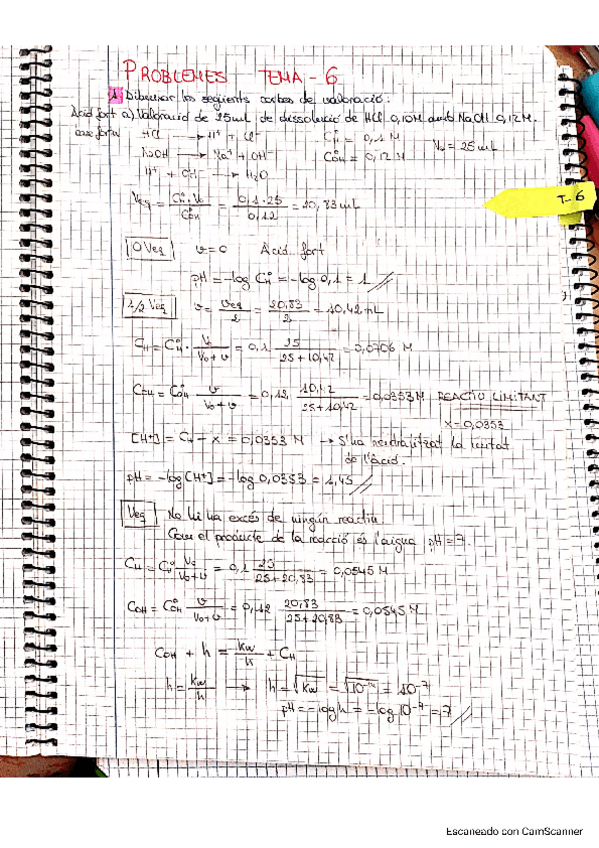 PROBLEMES TEMA - 6
1. Dibuixar les següents corbes de valoració:
Àcid fort a) Valoració de 25mL de dissolució de HCl 0,10M amb NaOH 0,12M.
base forta HCl → H⁺ + Cl⁻ C°H = 0,1 M
NaOH → Na⁺ + OH⁻ C°OH = 0,12 M V₀ = 25 mL
H⁺ + OH⁻ → H₂O
T-6
Veq = C°H · V₀ / C°OH = 0,1 · 25 / 0,12 = 20,83 mL
0 Veq v = 0 Àcid fort
pH = -log C°H = -log 0,1 = 1
1/2 Veq v = Veq / 2 = 20,83 / 2 = 10,42 mL
CH = C°H · V₀ / V₀+v = 0,1 25 / 25+10,42 = 0,0706 M
COH = C°OH v / V₀+v = 0,12 10,42 / 25+10,42 = 0,0353 M REACTIU LIMITANT
x = 0,0353
[H+] = CH - x = 0,0353 M → S'ha neutralitzat la meitat
de l'àcid.
pH = -log[H+] = -log 0,0353 = 1,45
Veq No hi ha excés de ningún reactiu.
Com el producte de la reacció és l'aigua pH = 7.
CH = C°H V₀ / V₀+v = 0,1 25 / 25+20,83 = 0,0545 M
COH = C°OH v / V₀+v = 0,12 20,83 / 25+20,83 = 0,0545 M
COH + h = kw / h + CH
h = kw / h → h = √kw = √10⁻¹⁴ = 10⁻⁷
pH = -log h = -log 10⁻⁷ = 7
Escaneado con CamScanner